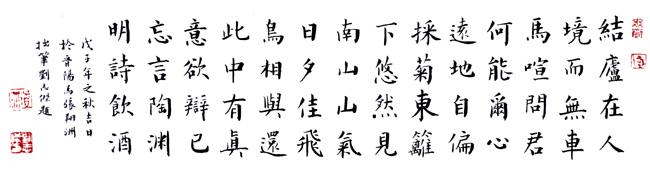 結廬在人
境而無車
馬喧問君
何能爾心
遠地自偏
採菊東籬
下悠然見
南山山氣
日夕佳飛
鳥相與還
此中有真
意欲辯已
忘言陶渊
明詩飲酒
戊子年之秋吉日
於晋陽為張翔洲
拙筆劉志傑題